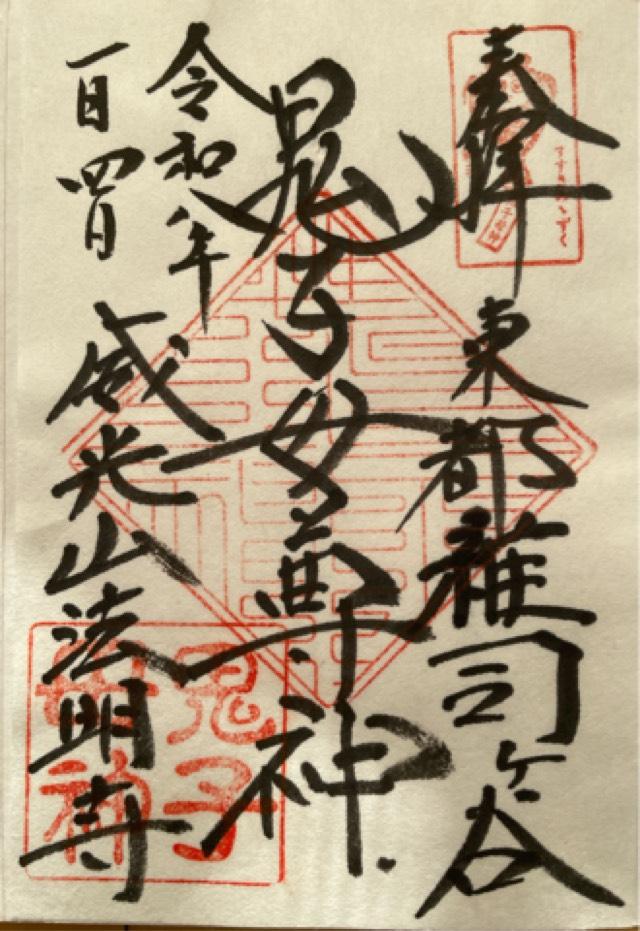 奉拝
東都雑司ヶ谷
鬼子母尊神
令和八年
一月四日
威光山法明寺
鬼子
母神